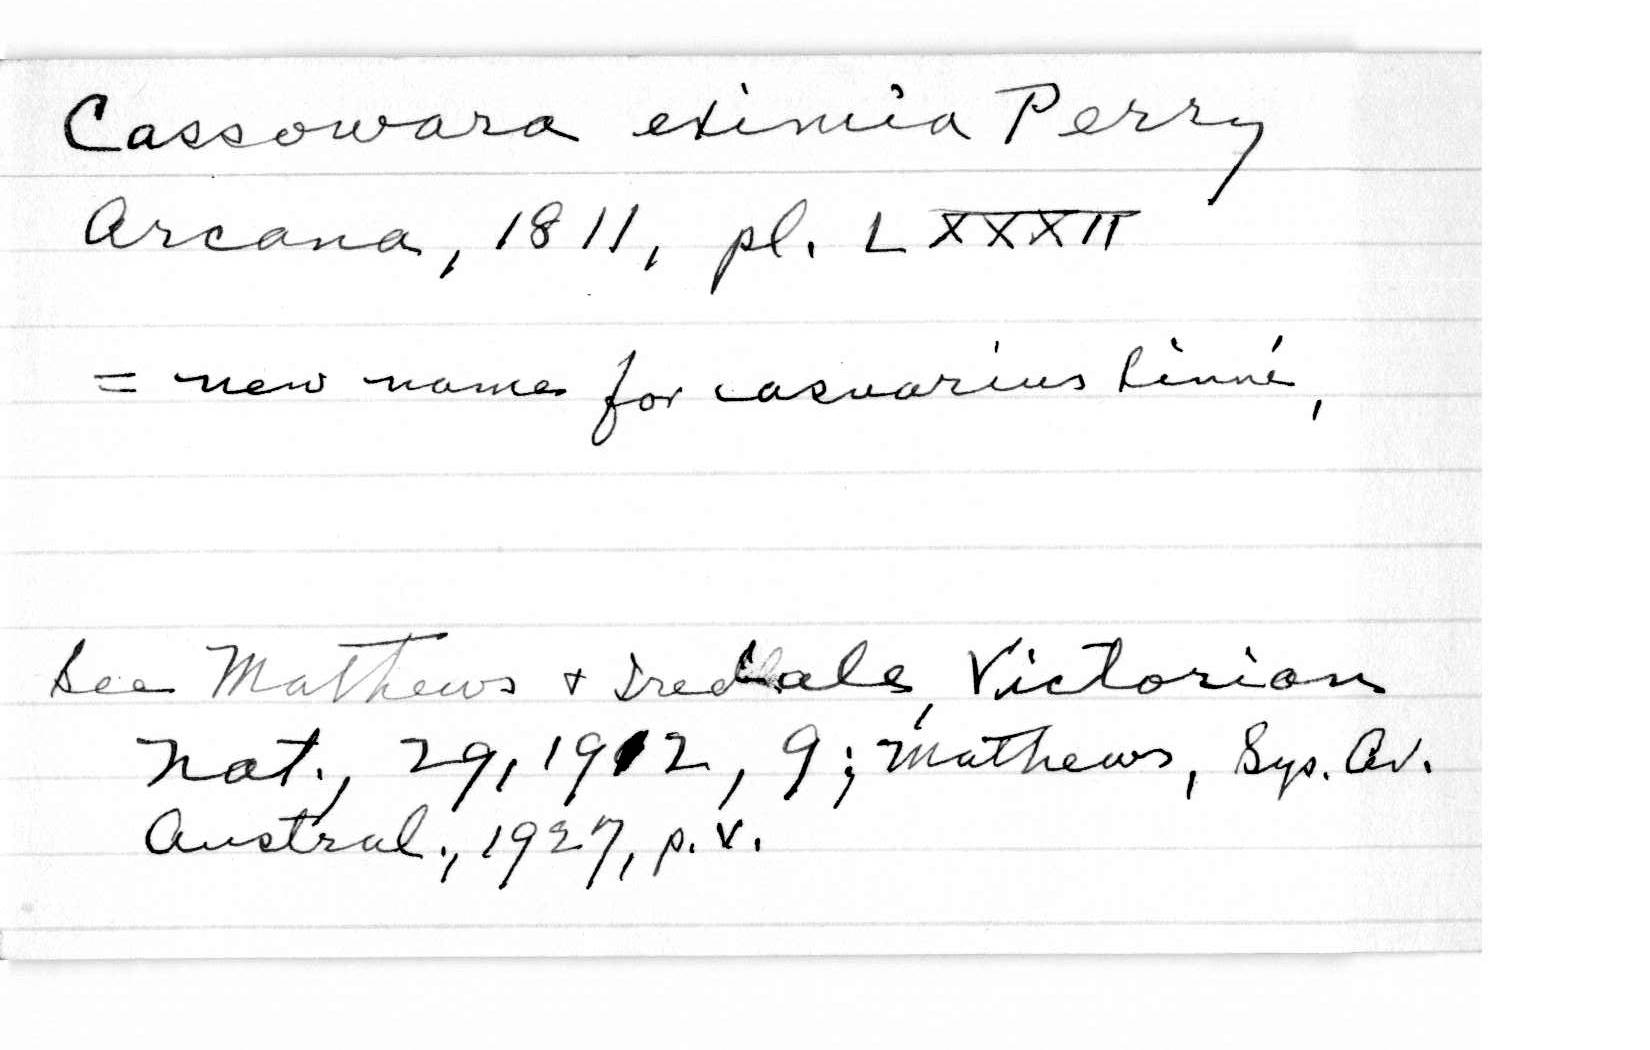 Cassowara eximia Perry
Arcana, 1811, pl. LXXXII
= new name for casuarius Linné,
See Mathews + Iredale, Victorian
Nat., 29, 1912, 9; Mathews, Sys. Av.
Austral., 1927, p. v.